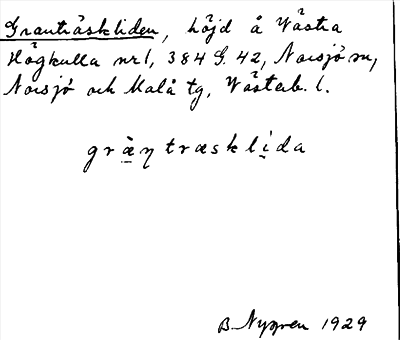 Granträskliden, höjd å Västra
Högkulla nr 1, 384 G. 42, Norsjö sn,
Norsjö och Malå tg, Västerb. l.
gràn̥træsklịda
B. Nygren 1929